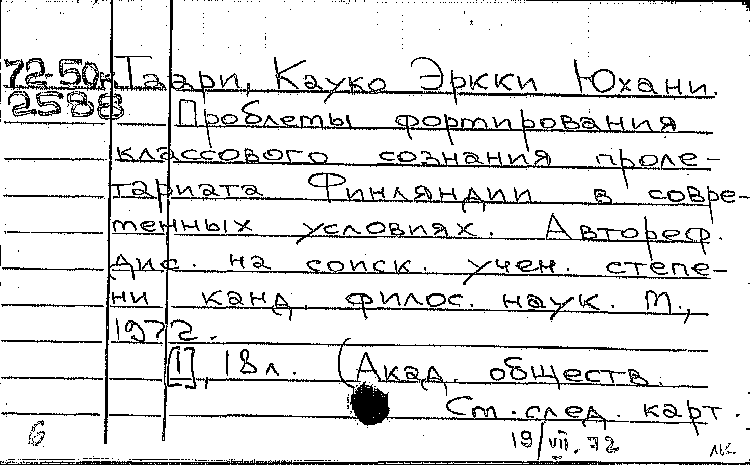 72-50к Таари, Кауко Эркки Юхани.
2588 Проблемы формирования
классового сознания проле-
тариата Финляндии в совре-
менных условиях. Автореф.
дис. на соиск. учен. степе-
ни канд. филос. наук. М.,
1972.
[1], 18 л. (Акад. обществ.
См. след. карт.
6 19/VII.72